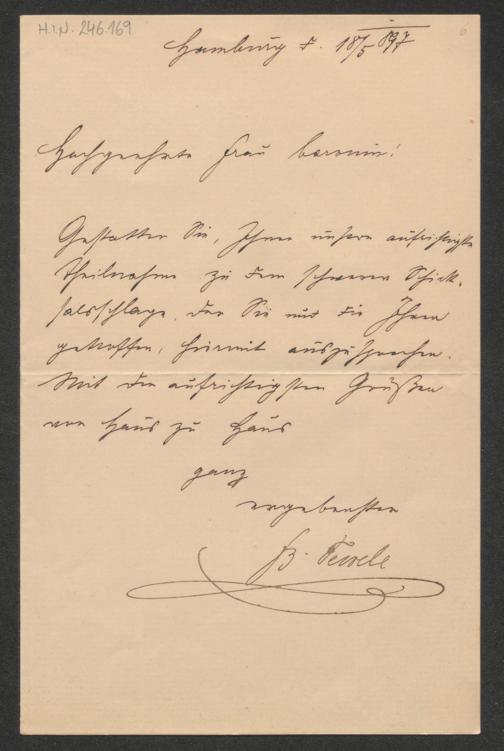 H.I.N. 246.169
Hamburg d. 18/5 897
Hochgeehrte Frau baronin!
Gestatten Sie, Ihnen unsere aufrichtigste
Theilnahme zu dem schweren Schick-
salsschlage, der Sie und die Ihren
getroffen, hiermit auszusprechen.
Mit den aufrichtigsten Grüßen
von Haus zu Haus
ganz
ergebensten
B.